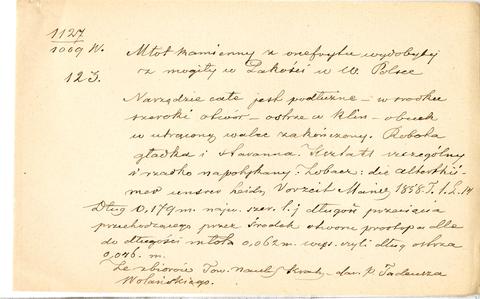 1127
1069 W.
123.
Młot kamienny z nefrytu wydobyty
z mogiły w Pakości w W. Polsce
Narzędzie całe jest podłużne – w środku
szeroki otwór – ostrze w klin – obuch
w utrącony walec zakończony. Robota
gładka i staranna. Kształt szczególny
i rzadko napotykany: Zobacz: die alterthü-
mer unsrer heidn. Vorzeit Mainz 1858. T. 1. Z. 14
Dług 0,179 m. najw. szer. t. j. długość przecięcia
przechodzącego przez środek otworu prostop. dle
do długości młota 0,062 m. wys. czyli dług ostrza
0,046 m.
Ze zbiorów Tow. nauk. Krak. – dar p. Tadeusza
Wolańskiego.